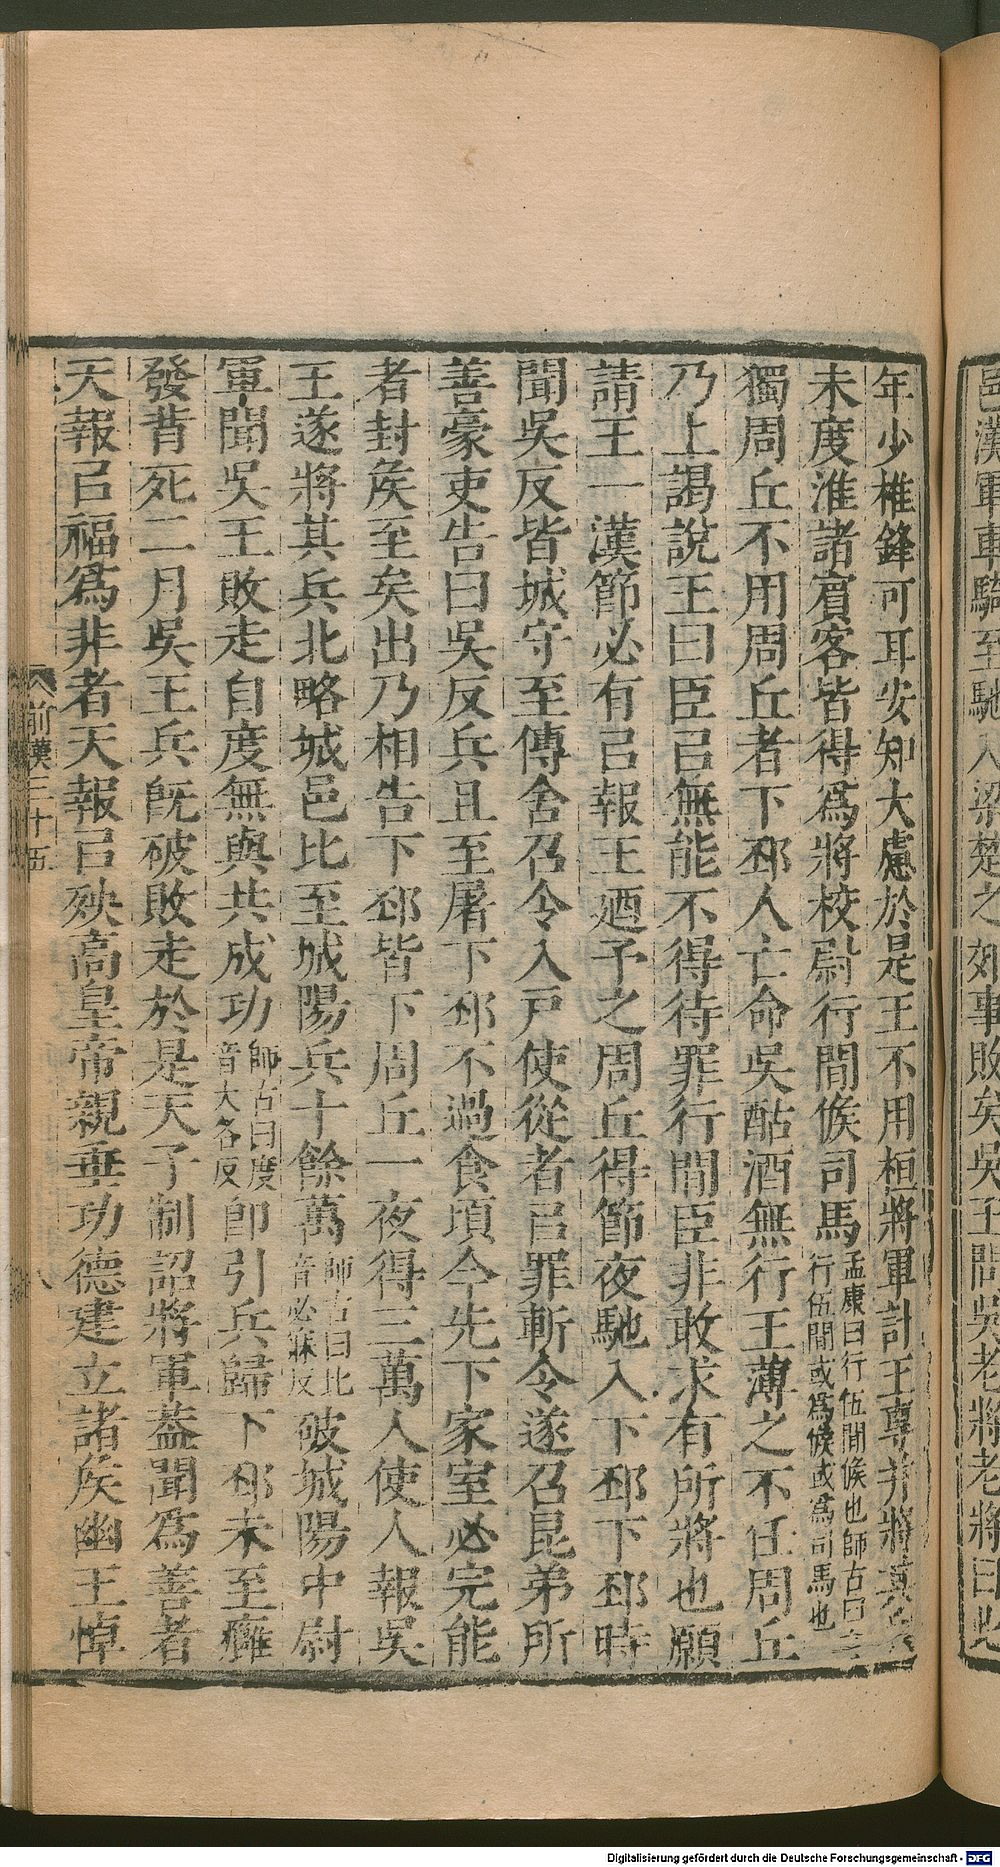 邑漢軍車騎至馳入梁楚之郊事敗矣吳王問吳老將老將曰此
年少椎鋒可耳安知大慮於是王不用桓將軍計王專并將其兵
未度淮諸賔客皆得爲將校尉行間候司馬孟康曰行伍間候也師古曰
行伍間或爲候或爲司馬也
獨周丘不用周丘者下邳人亡命吳酤酒無行王薄之不任周丘
乃上謁說王曰臣㠯無能不得待罪行間臣非敢求有所將也願
請王一漢節必有㠯報王廼予之周丘得節夜馳入下邳下邳時
聞吳反皆城守至傳舍召令入戸使從者㠯罪斬令遂召昆弟所
善豪吏告曰吳反兵且至屠下邳不過食頃今先下家室必完能
者封矦至矣出乃相告下邳皆下周丘一夜得三萬人使人報吳
王遂將其兵北略城邑比至城陽兵十餘萬師古曰比
音必寐反破城陽中尉
軍聞吳王敗走自度無與共成功師古曰度
音大各反卽引兵歸下邳未至癰
發背死二月吳王兵旣破敗走於是天子制詔將軍葢聞爲善者
天報㠯福爲非者天報㠯殃高皇帝親垂功德建立諸矦幽王悼
前漢三十五
八
Digitalisierung gefördert durch die Deutsche Forschungsgemeinschaft - DFG